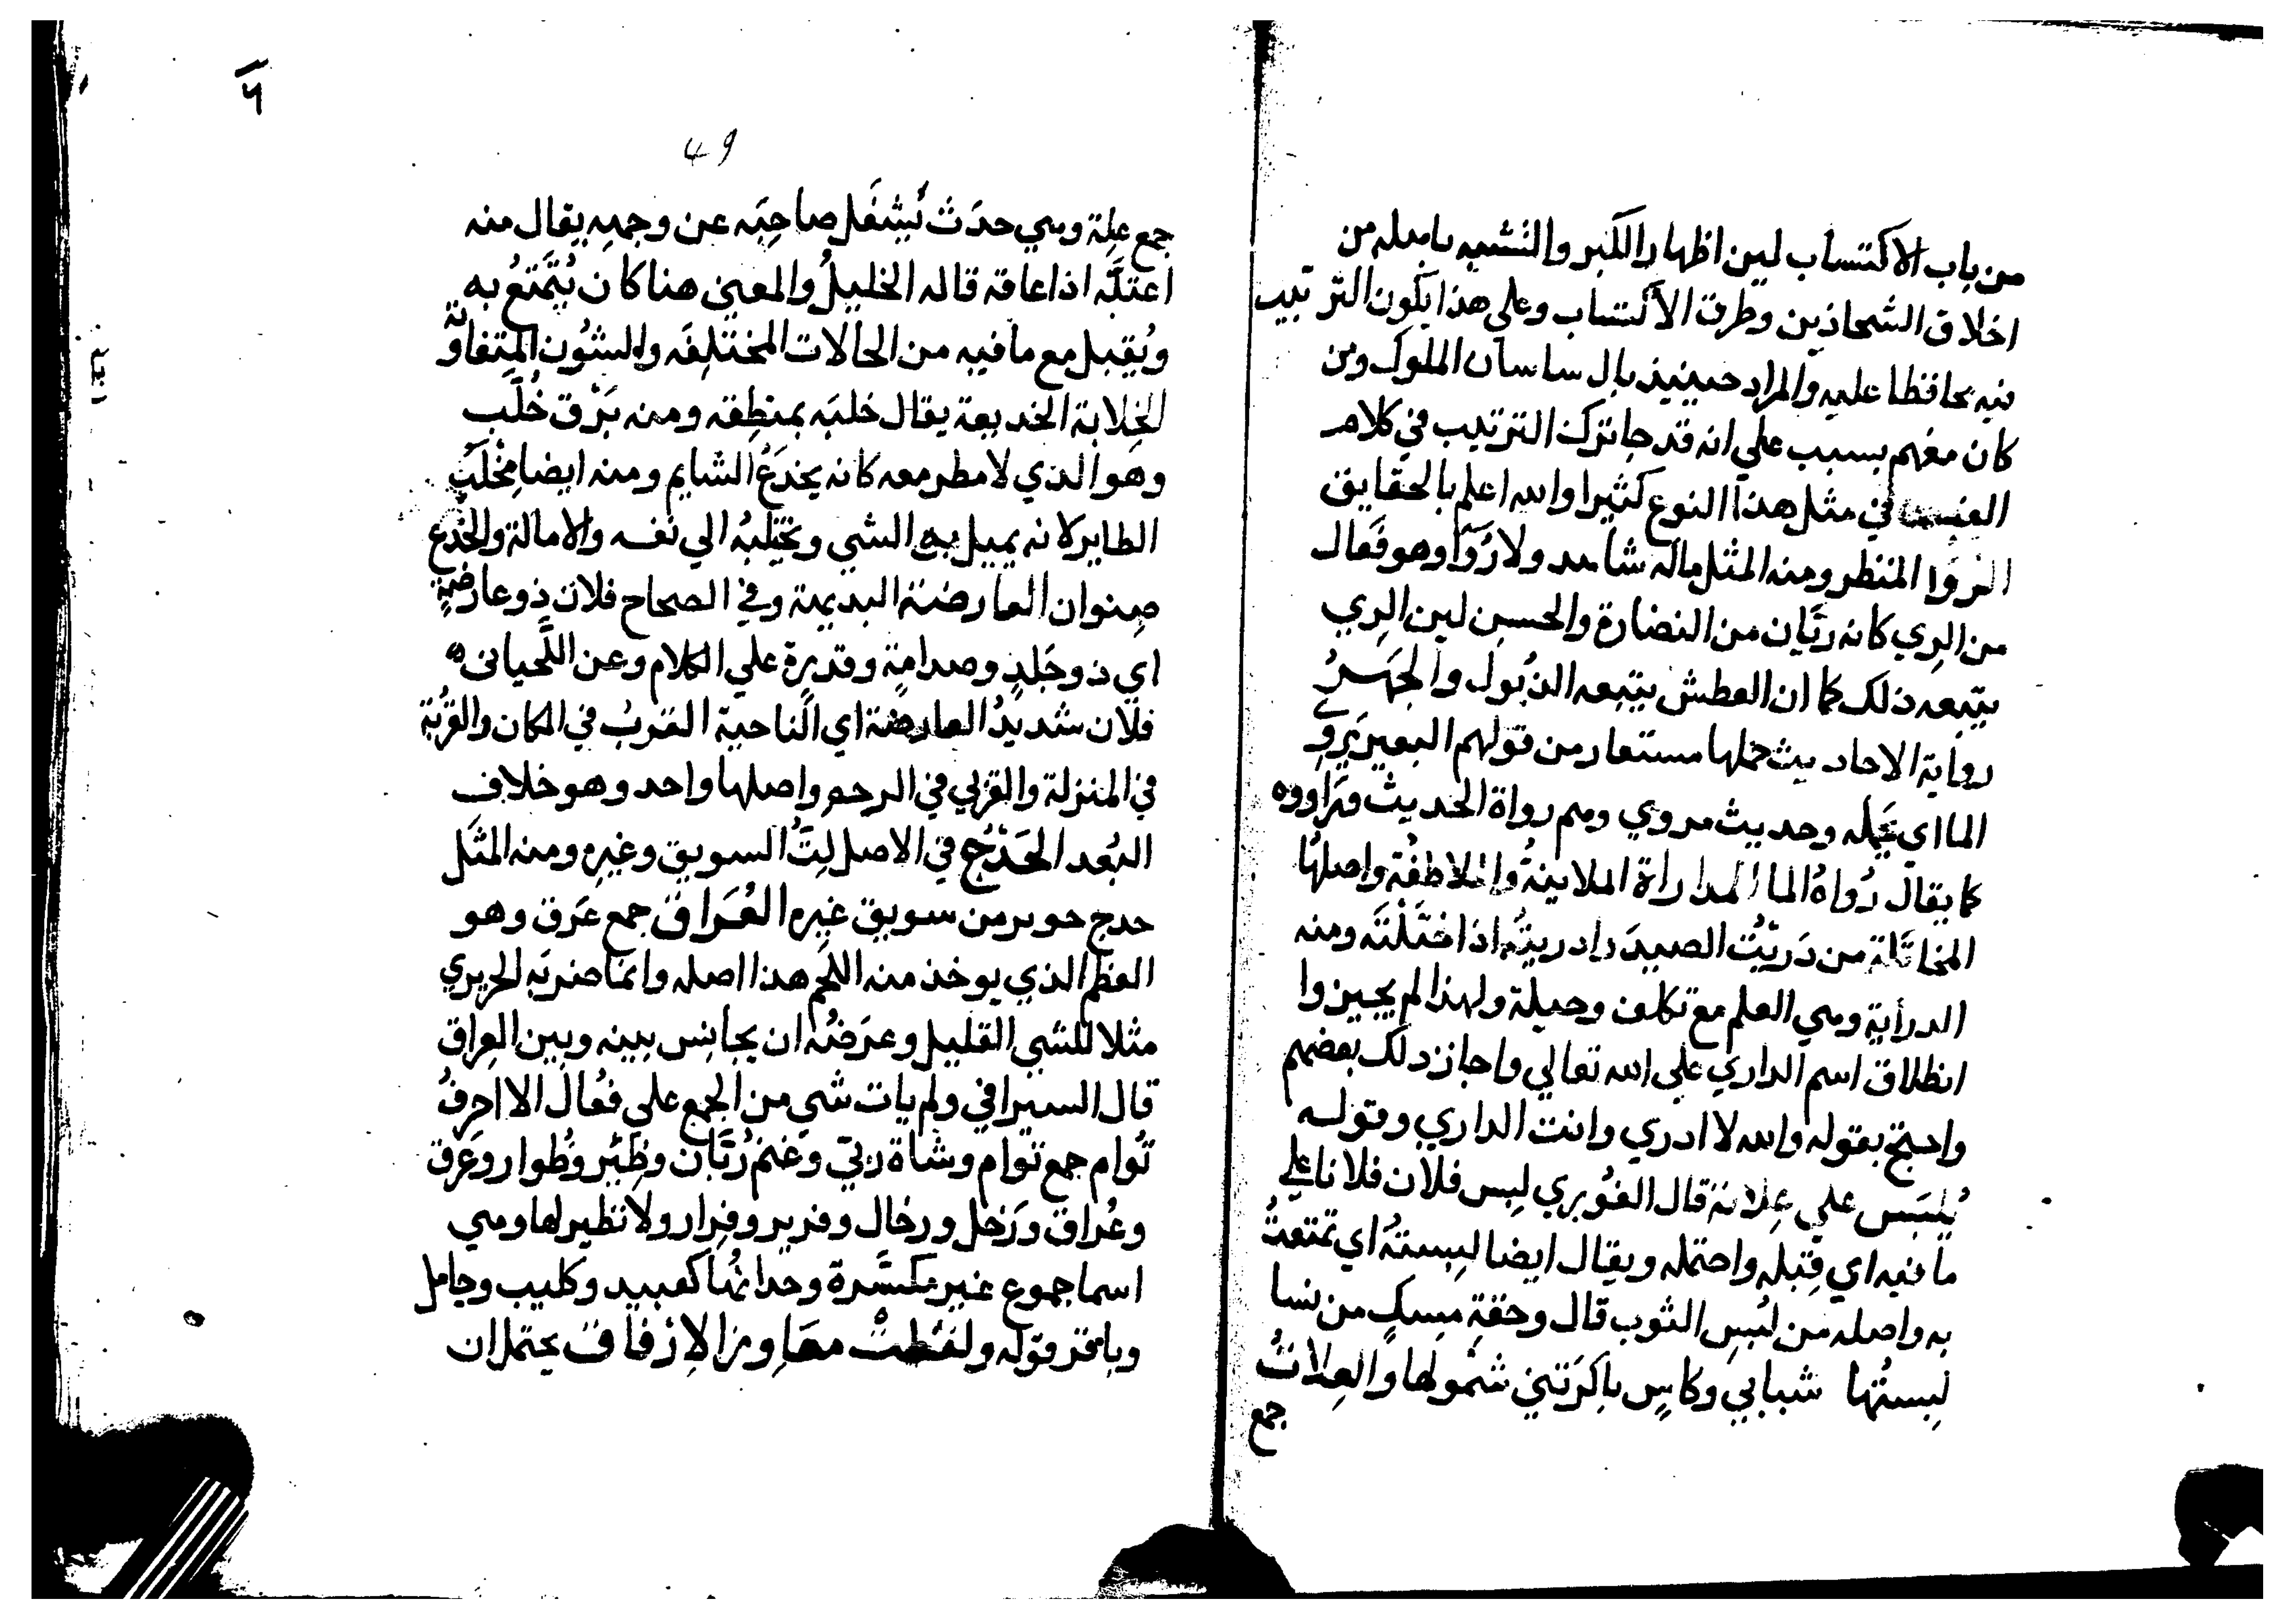 من باب الاكتساب لين اظهار الكبر والتشبه باهله من
اخلاق الشحاذين وطرق الاكتساب وعلي هذا يكون الترتيب
فيه محافظا عليه والمراد حينيذ بال ساسان الملوك ومن
كان معهم بسبب علي انه قد جا ترك الترتيب في كلام
في مثل هذا النوع كثيرا والله اعلم بالحقايق
الروا المنظر ومنه المثل ماله شاهد ولا رُوآ وهو فَعال
من الرِي كانه ريَّان من النضارة والحسن لين الرِي
يتبعه ذلك كما ان العطش يتبعه الذبول والجهَرُ
رواية الاحاديث حملها مستعار من قولهم البعير يَروِي
الما اي يحمله وحديث مروي وهم رواة الحديث وراووه
كما يقال رُواةُ الما المداراة الملاينةُ والملاطفة واصلها
المخاتلة من دَرَيْتُ الصيدَ وادريتُه اذا ختَلْتَه ومنه
الدراية وهي العلم مع تكلف وحيلة ولهذا لم يجيزوا
انطلاق اسم الداري علي الله تعالي واجاز ذلك بعضهم
واحتج بقوله والله لا ادري وانت الداري وقوله
يُلبَس علي عِلاته قال الغوري لبِس فلان فلانا علي
ما فيه اي قبِله واحتمله ويقال ايضا لبِستهُ اي تمتعتُ
به واصله من لبْسِ الثوب قال وحقةِ مِسكٍ من نسا
لبِستُها شبابي وكاسٍ باكرَتني شَمولها والعِلاتُ
جمع
49
جمع عِلة وهي حدَث يُشغَل صاحِبَه عن وجهه يقال منه
اعتلَّه اذا عاقه قاله الخليلُ والمعني هنا كان يُتَمتعُ به
ويُقبل مع ما فيه من الحالات المختلِفَه والشؤن المتفاوتة
الخِلابة الخديعة يقال خلبَه بمنطِقه ومنه بَرْق خُلَّب
وهو الذي لا مطر معه كانه يخدَعُ الشايم ومنه ايضا مِخْلَبُ
الطاير لانه يميل به الشي ويختلبهُ الي نفسه والامالة والخدْع
صِنوان العارضة البديهة وفي الصحاح فلان ذو عارضةٍ
اي ذو جَلَدٍ وصرامةٍ وقدرة علي الكلام وعن اللَّحياني ه
فلان شديدُ العارضة اي الناحية القربُ في المكان والقُربة
في المنزلة والقربي في الرحم واصلها واحد وهو خلاف
البُعد الحَدْجُ في الاصل لتُّ السويق وغيرِه ومنه المثل
حدج من سويق غيره العُرَاق جمع عَرق وهو
العظم الذي يوخذ منه اللحم هذا اصله وانما ضربَه الحريري
مثلا للشي القليل وغرَضُه ان يجانِس بينه وبين العِراق
قال السيرافي ولم يات شي من الجمع علي فُعال الا احرفٌ
تُوام جمع توام وشاة ربّي وغنم رُبَّان وظِئر وظُوار وعَرق
وعُراق ورَخل ورخال وفرير وفرار ولا نظير لها وهي
اسما جموع غير مكسَّرة وحداتُها كعبيد وكليب وجامل
وباقر قوله ولفظت معاوز الارفاق يحتمل ان